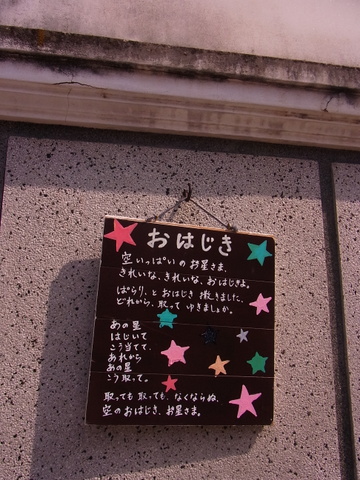 おはじき
空いっぱいのお星さま、
きれいな、きれいな、おはじきよ。
ぱらり、とおはじき撒きました、
どれから、取ってゆきましょか。
あの星
はじいて
こう当てて、
あれから
あの星
こう取って。
取っても取っても、なくならぬ、
空のおはじき、お星さま。